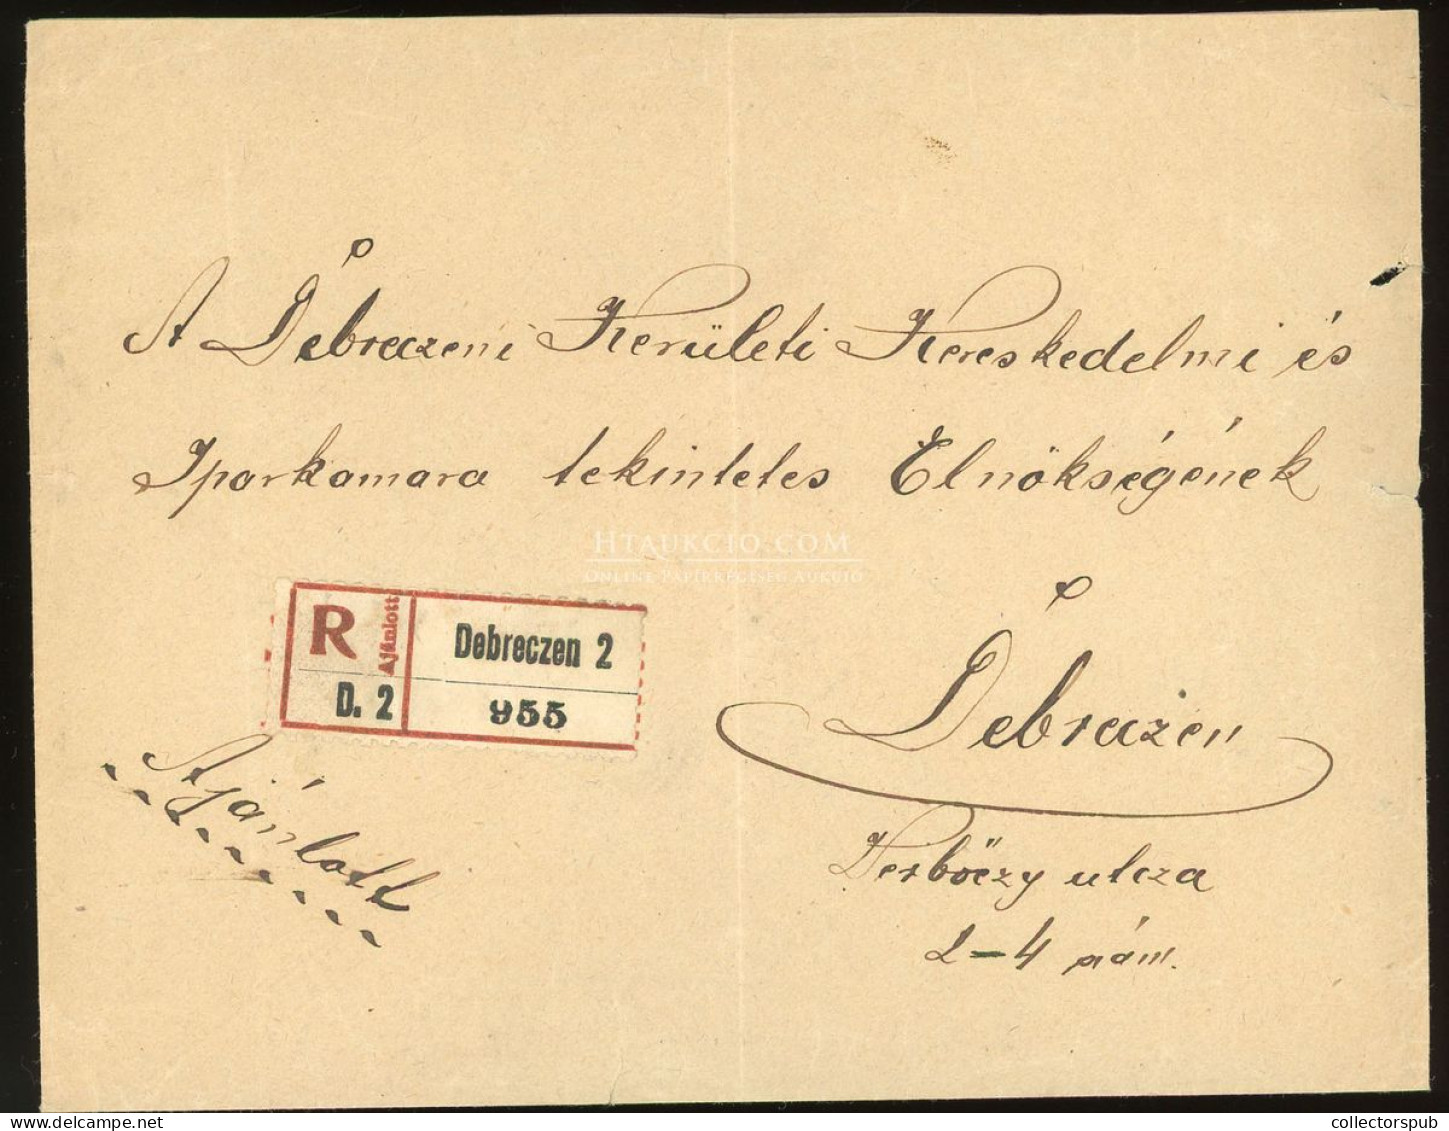 A Debreczeni Kerületi Kereskedelmi és
Iparkamara tekintetes Elnökségének
HTAUKCIO.COM
ONLINE PAPÍRRÉGISÉG AUKCIÓ
R Ajánlott Debreczen 2
D. 2 955
Debreczen
Ajánlott
Verbőczy utcza
2-4 szám.
delcampe.net
collectorspub